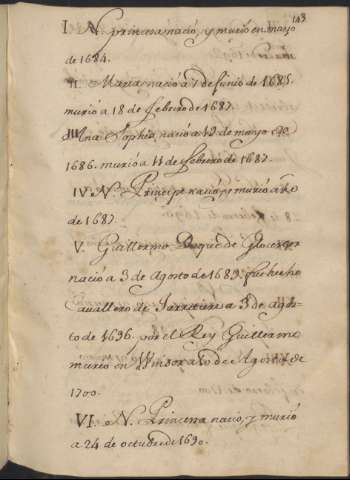 143
I. N. princesa nació, y murio en mayo
de 1684.
II. Maria nació a 7 de Junio de 1685.
murió a 18 de febrero de 1687.
III. Ana Sophia, nació a 12 de mayo de
1686. murió a 11 de febrero de 1687.
IV. N. Principe nació y murió a
de 1687.
V. Guillermo Duque de Glocester
nació a 3 de Agosto de 1689. fue hecho
Cavallero de Jarratiere a 3 de agos-
to de 1696. por el Rey Guillermo
murio en Winsor a 10 de Agosto de
1700.
VI. N. Princesa nacio, y murió
a 24 de octubre de 1690.